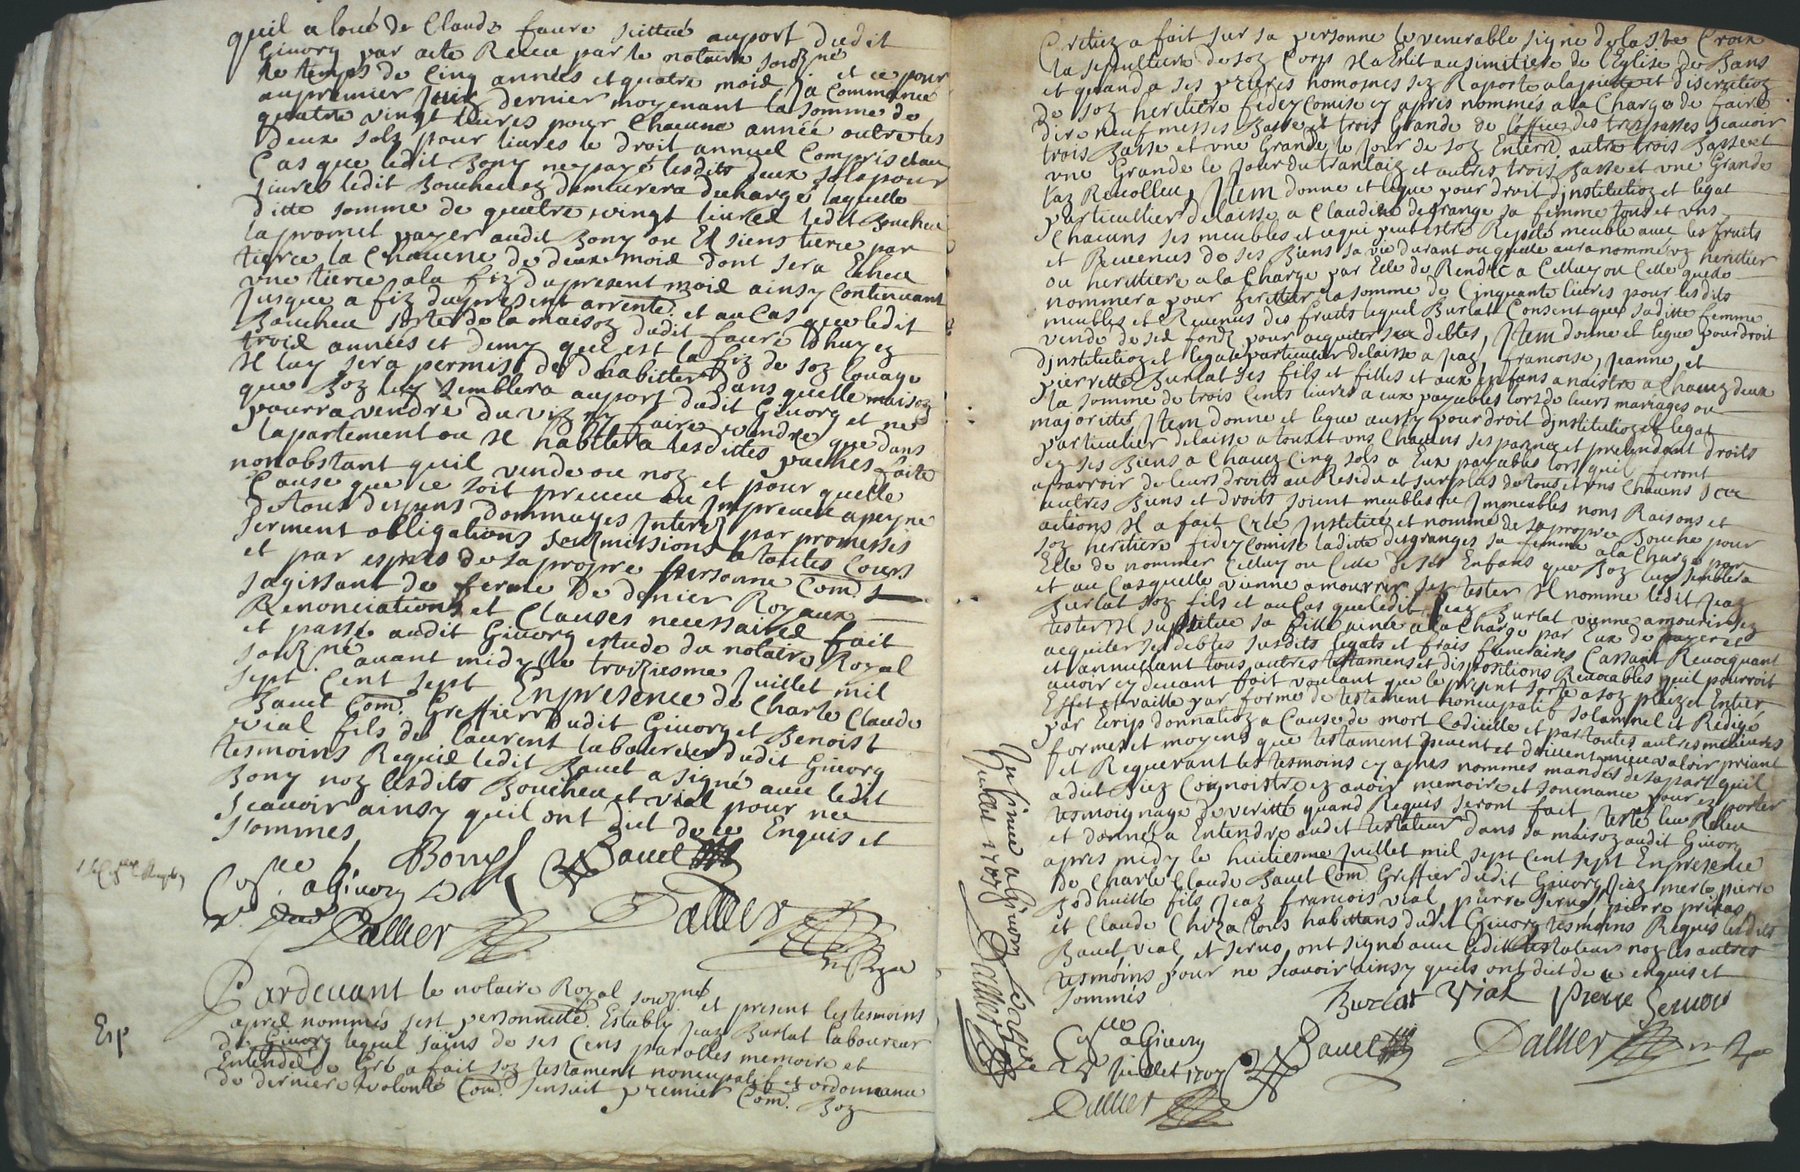 quil a loué de Claude faure scittué auport dudit
Givorg par acte Receu par le notaire souzne
et ce pour
le temps de Cinq années et quatre mois Ja Commancé
au premier Juin dernier moyenant la somme de
quatre vingt livres pour Chacune année outre les
deux sols pour livres le droit annuel Compris et au
Cas que ledit Bony ne paye lesdits deux sols pour
livres ledit Boucheu en demeurera decharge laquelle
ditte somme de quatre vingt livres ledit Boucheu
la promet payer audit Bony ou Es siens tierce par
tierce la Chacune de deux mois dont sera Echeu
une tierce a la fin du present mois ainsy Continuant
Jusque a fin du present arrente et au Cas que ledit
Boucheu sorte de la maison dudit faure dhuy en
trois années et demy qui est la fin de son louage
Il luy sera permis de dhabitter dans quelle maison
que Bon luy semblera auport dudit Givorg et ne
pourra vendre du vin ny faire vendre que dans
lapartement ou Il habitera lesdittes paches faite
nonobstant quil vende ou non et pour quelle
Cause que ce soit preveu ou Impreveu a peyne
de tous despens dommages Interez par promesses
serment obligations seubmissions a toutes Cours
et par espres de sa propre personne Comd
sagissant de ferme de denier Royaux
Renonciations et Clauses necessaires fait
et passé audit Givorg estude du notaire Royal
souzne avant midy le troiziesme Juillet mil
sept Cent sept En presence de Charle Claude
Bauel Com. Greffier dudit Givorg et Benoist
vial fils de laurent laboureur dudit Givorg
tesmoins Requis ledit Bauel a signé avec ledit
Bony non lesdits Boucheu et vial pour ne
scavoir ainsy quil ont dit de ce Enquis et
sommes
Bony Bauel
a Givorg
Dallier Dallier
n. Rya
Pardevant le notaire Royal souzné et present les tesmoins
apres nommés sest personnellé. Estably Jean Burlat laboureur
de Givorg lequel sains de ses Cens parolles memoire et
Entendem. de Gré a fait son testament noncupatif et ordonnance
de derniere volonté Com. sensuit premier Com. Bon
Exp
Cretien a fait sur sa personne le venerable signe de la Ste Croix
la sepulture de son Corps Il a Eslit au simitiere de lEglise de Bans
et quand a ses prieres homosnes sen Raporte a la pieté et discretion
de son heritiere fideyComise cy apres nommés a la Charge de faire
dire neuf messes Basse et trois Grande de loffice des trespasses scavoir
trois Basse et une Grande le Jour de son Enterr. autre trois Basse et
une Grande le Jour du trantain et autres trois Basse et une Grande
lan Revolleu, Item donne et legue pour droit dinstitution et legat
particullier delaisse a Claudine desgrange sa femme tous et uns
Chacuns ses meubles et ce qui peut estre Reputé meuble avec les fruits
et Revenus de ses Biens sa vie durant ou quelle aura nommé un heritier
ou herittiere a la Charge par Elle de Rendre a Celluy ou Celle quelle
nommera pour herittier la somme de Cinquante livres pour lesdits
meubles et Revenus des fruits lequel Burlat Consent que saditte femme
vende de ses fonds pour acquiter ses debtes, Item donne et legue pour droit
dinstitution et legat particulier delaisse a Jean, francoise, Jeanne, et
pierrette Burlat ses fils et filles et aux Enfans a naistre a Chacun deux
la somme de trois Cents livres a eux payables lors de leurs mariages ou
majorittes, Item donne et legue aussy pour droit dinstitution et legat
particulier delaisse a tous et uns Chacuns ses parans et pretendant droits
en ses Biens a Chacun Cinq sols a Eux payables lors quil feront
aparroir de leurs droits au Residu et surplus de tous et uns Chacuns ses
autres Biens et droits soient meubles ou Immeubles noms Raisons et
actions Il a fait Créé Institué et nommé de sa propre Bouche pour
son heritiere fideyComise laditte desgranges sa femme a la Charge par
Elle de nommer Celluy ou Celle de ses Enfans que Bon luy semblera
et au Cas quelle vienne a mourrir sans tester Il nomme ledit Jean
Burlat son fils et au Cas que ledit Jean Burlat vienne a mourir sans
tester Il substitue sa fille ainée a la Charge par Eux de payer et
acquiter ses debtes susdits legats et frais funeraires Cassant Revocquant
et annullant tous autres testamens et dispositions Revocables quil pourroit
avoir cy devant fait voulant que le present sorte a son plain et Entier
Effet et vaille par forme de testament noncupatif solamnel et Redigé
par Ecrip donnation a Cause de mort Codicille et par toutes autres meilleures
formes et moyens que testament peuvent et doivent mieux valoir priant
et Requerant les tesmoins cy apres nommes mandes de sa part quil
a dict Bien Cognoistre en avoir memoire et souvenance pour en porter
tesmoignage de veritté quand Requis seront fait, testé leu Releu
et donné a Entendre audit testateur dans sa maison audit Givorg
apres midy le huitiesme Juillet mil sept Cent sept En presence
de Charle Claude Bauel Com. Greffier dudit Givorg Jean merle pierre
Bodhuille fils Jean francois vial, pierre servos, pierre privas,
et Claude Chiza tous habittans dudit Givorg tesmoins Requis lesdits
Bauel vial et servos, ont signé avec ledit testateur non les autres
tesmoins pour ne scavoir ainsy quils ont dict de ce enquis et
sommés
Burlat Vial Pierre Servos
a Givorg
Juillet 1707 Bauel Dallier
Dallier
Insinué a Givorg
Juillet 1707 Dallier